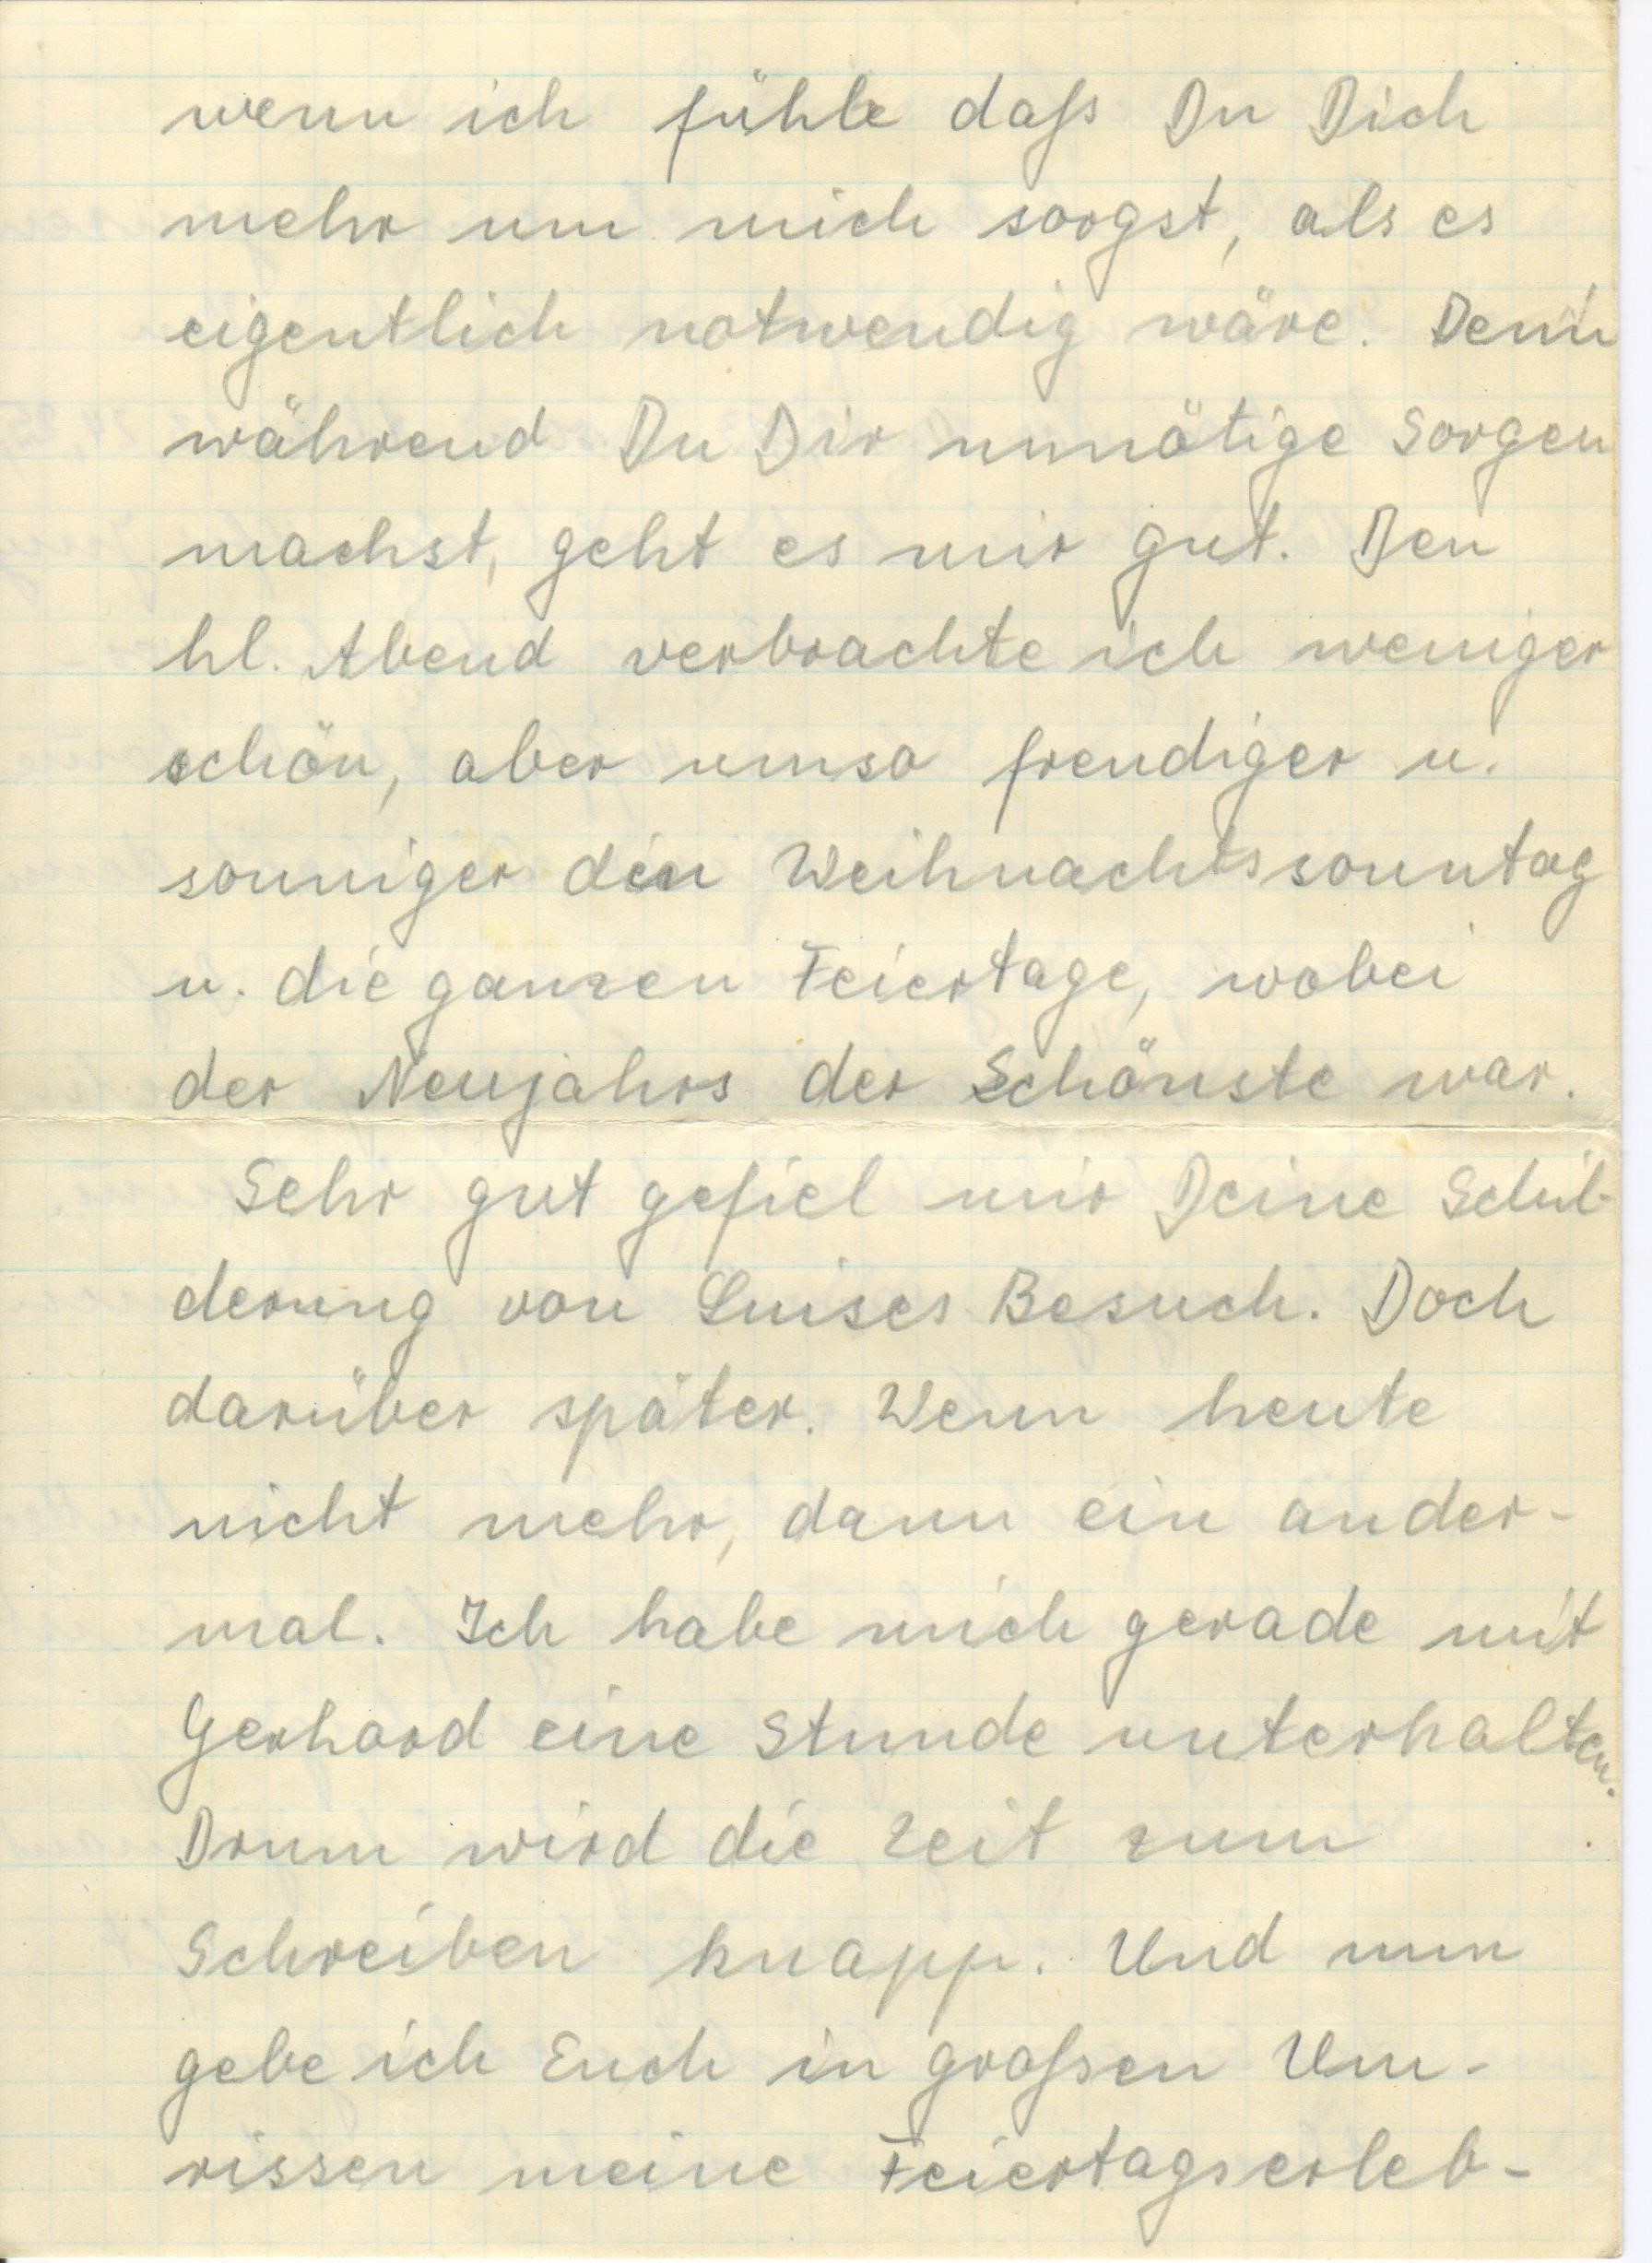 wenn ich fühle daß Du Dich
mehr um mich sorgst, als es
eigentlich notwendig wäre. Denn
während Du Dir unnötige Sorgen
machst, geht es mir gut. Den
hl. Abend verbrachte ich weniger
schön, aber umso freudiger u.
sonniger den Weihnachtssonntag
u. die ganzen Feiertage, wobei
der Neujahrs der Schönste war.
Sehr gut gefiel mir Deine Schil-
derung von Luises Besuch. Doch
darüber später. Wenn heute
nicht mehr, dann ein ander-
mal. Ich habe mich gerade mit
Gerhard eine Stunde unterhalten.
Drum wird die Zeit zum
Schreiben knapp. Und nun
gebe ich Euch in großen Um-
rissen meine Feiertagserleb-